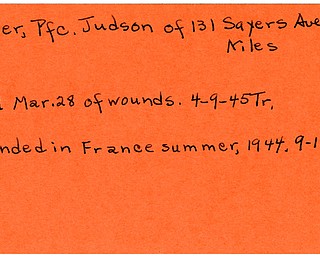 er, Pfc. Judson of 131 Sayers Ave
Niles
Mar. 28 of wounds. 4-9-45 Tr.
nded in France summer, 1944. 9-1